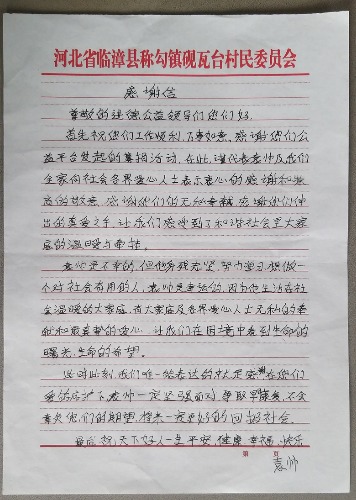 河北省临漳县称勾镇砚瓦台村民委员会
感谢信
尊敬的建德公益领导们你们好。
首先祝你们工作顺利，万事如意，感谢你们公
益平台发起的募捐活动，在此，谨代表袁帅及我们
全家向社会各界爱心人士表示衷心的感谢和
的敬意，感谢你们的无私奉献，感谢你们伸
出的援助之手，让我们感受到了和谐社会里大家
庭的温暖与牵挂。
袁帅是不幸的，但他身残志坚，努力学习，想做一
个对社会有用的人，袁帅是幸运的，因为他生活在社
会温暖的大家庭，有大家庭及各界爱心人士无私的奉
献和最真挚的爱心，让我们在困境中看到生命的
曙光，生命的希望。
此时此刻，我们唯一能表达的就是感谢，在你们
爱的庇护下袁帅一定坚强面对，争取早康复，不会
辜负你们的期望，将来一定更好的回报社会。
最后，祝天下好人一生平安，健康 幸福，快乐
第 页
袁帅